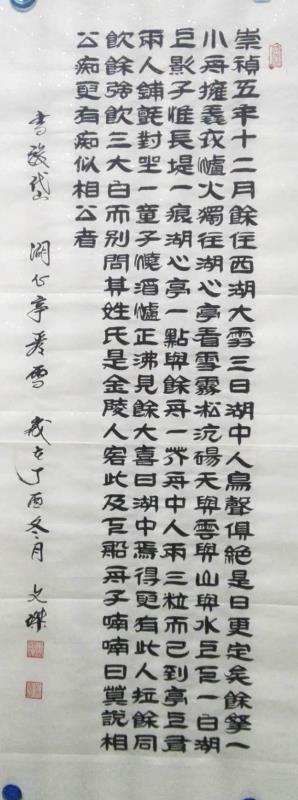 崇禎五年十二月餘住西湖大雪三日湖中人鳥聲俱絕是日更定矣餘拏一
小舟擁毳衣爐火獨往湖心亭看雪霧淞沆碭天與雲與山與水上下一白湖
上影子惟長堤一痕湖心亭一點與餘舟一芥舟中人兩三粒而已到亭上有
兩人鋪氈對坐一童子燒酒爐正沸見餘大喜曰湖中焉得更有此人拉餘同
飲餘強飲三大白而別問其姓氏是金陵人客此及下船舟子喃喃曰莫說相
公痴更有痴似相公者
書張岱 湖心亭看雪 歲在丁酉冬月 文